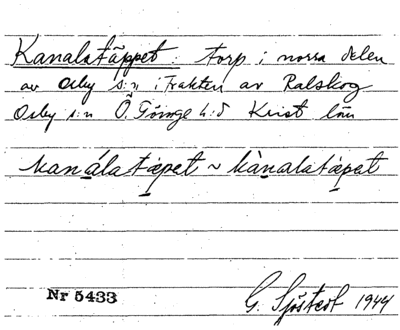 Kanalatäppet: torp i norra delen
av Osby s:n i trakten av Ralskog
Osby s:n Ö. Göinge h:d Krist län
kanálatæpet ~ kànalatæpet
Nr 5433
G. Sjöstedt 1944